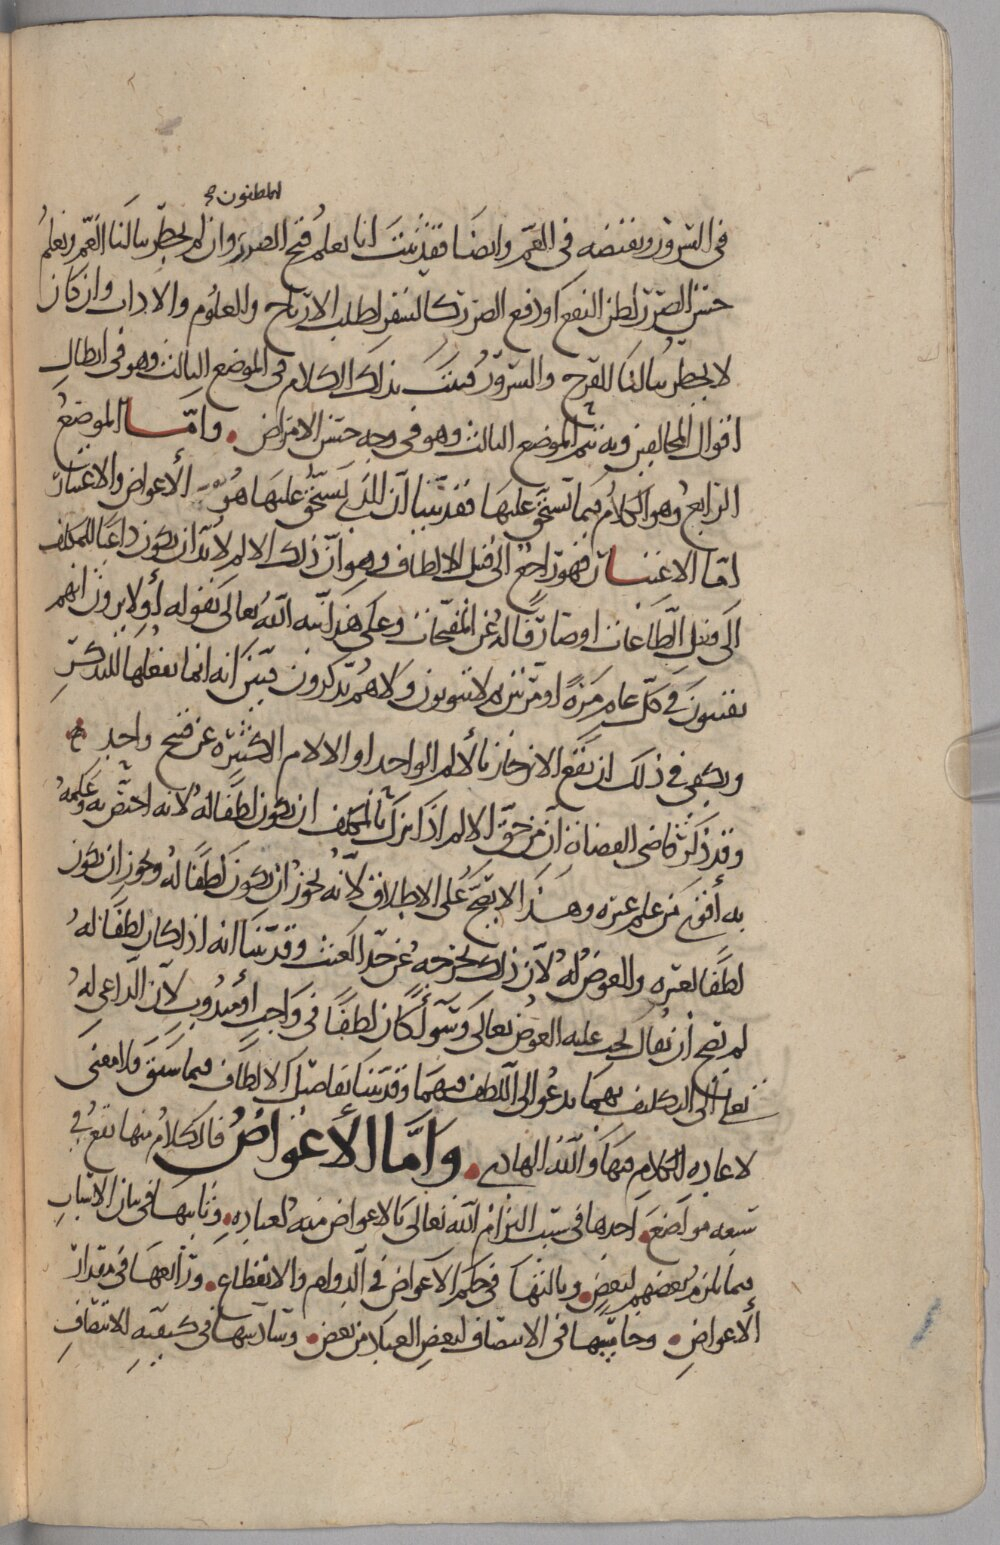 المظنون
في السرور ونقيضه في الغم وايضا فقد ثبت انا نعلم قبح الضرر وان لم يخطر ببالنا الغم ونعلم
حسن الضرر لظن النفع او دفع الضرر كالسفر لطلب الارباح والعلوم والاداب وان كان
لا يخطر ببالنا للفرح والسرور فثبت بذلك الكلام في الموضع الثالث وهو في ابطال
اقوال المخالفين وبه تم الموضع الثالث وهو في وجه حسن الامراض • واما الموضع
الرابع وهو الكلام فيما تستحق عليها فقد بينا ان الذي يستحق عليها هو الأعواض والاعتبار
اما الاعتبار فهو راجع الى قبيل الالطاف وهو ان ذلك الالم لا بد ان يكون داعيا للمكلف
الى فعل الطاعات او صارفا له عن المقبحات وعلى هذا نبه الله تعالى بقوله أولا يرون انهم
يفتنون في كل عام مرة او مرتين ثم لا يتوبون ولا هم يذكرون فبين انه انما يفعلها للتذكر
ويكفي في ذلك ان يقع الانزجار بالألم الواحد او الالام الكثيرة عن قبيح واحد
وقد ذكر قاضي القضاة ان من حق الالم اذا نزل بالمكلف ان يكون لطفا له لانه اختص به وعلمه
به أقوى من علم غيره وهذا لا يصح على الاطلاق لأنه يجوز ان يكون لطفا له ويجوز ان يكون
لطفا لغيره والعوض له لأن ذلك يخرجه عن حد العبث وقد بينا انه اذا كان لطفا له
لم يصح أن يقال يجب عليه العوض تعالى وسواء كان لطفا في واجب أو مندوب لأن الداعي له
تعالى الى التكليف بهما يدعو الى اللطف فيهما وقد بينا تفاصيل الالطاف فيما سبق فلا معنى
لاعاده الكلام فيها والله الهادي • وأما الأعواض فالكلام منها يقع في
سبعه مواضع • احدها في سبب التزام الله تعالى بالاعواض منه لعباده • وثانيها في بيان الاسباب
فيما يلزم بعضهم لبعض • وثالثها في حكم الأعواض في الدوام والانقطاع • ورابعها في مقدار
الأعواض • وخامسها في الانتصاف لبعض العباد من بعض • وسادسها في كيفيه الانتصاف